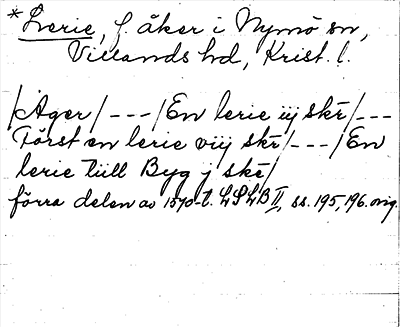 *Lerie, f. åker i Nymö sn,
Villands hd, Krist. l.
/Ager/---/En lerie iij skr/---
Först en lerie viij skr/---/En
lerie tiill Byg j skr/
förra delen av 1570-t. LSLB II, ss. 195, 196. orig.